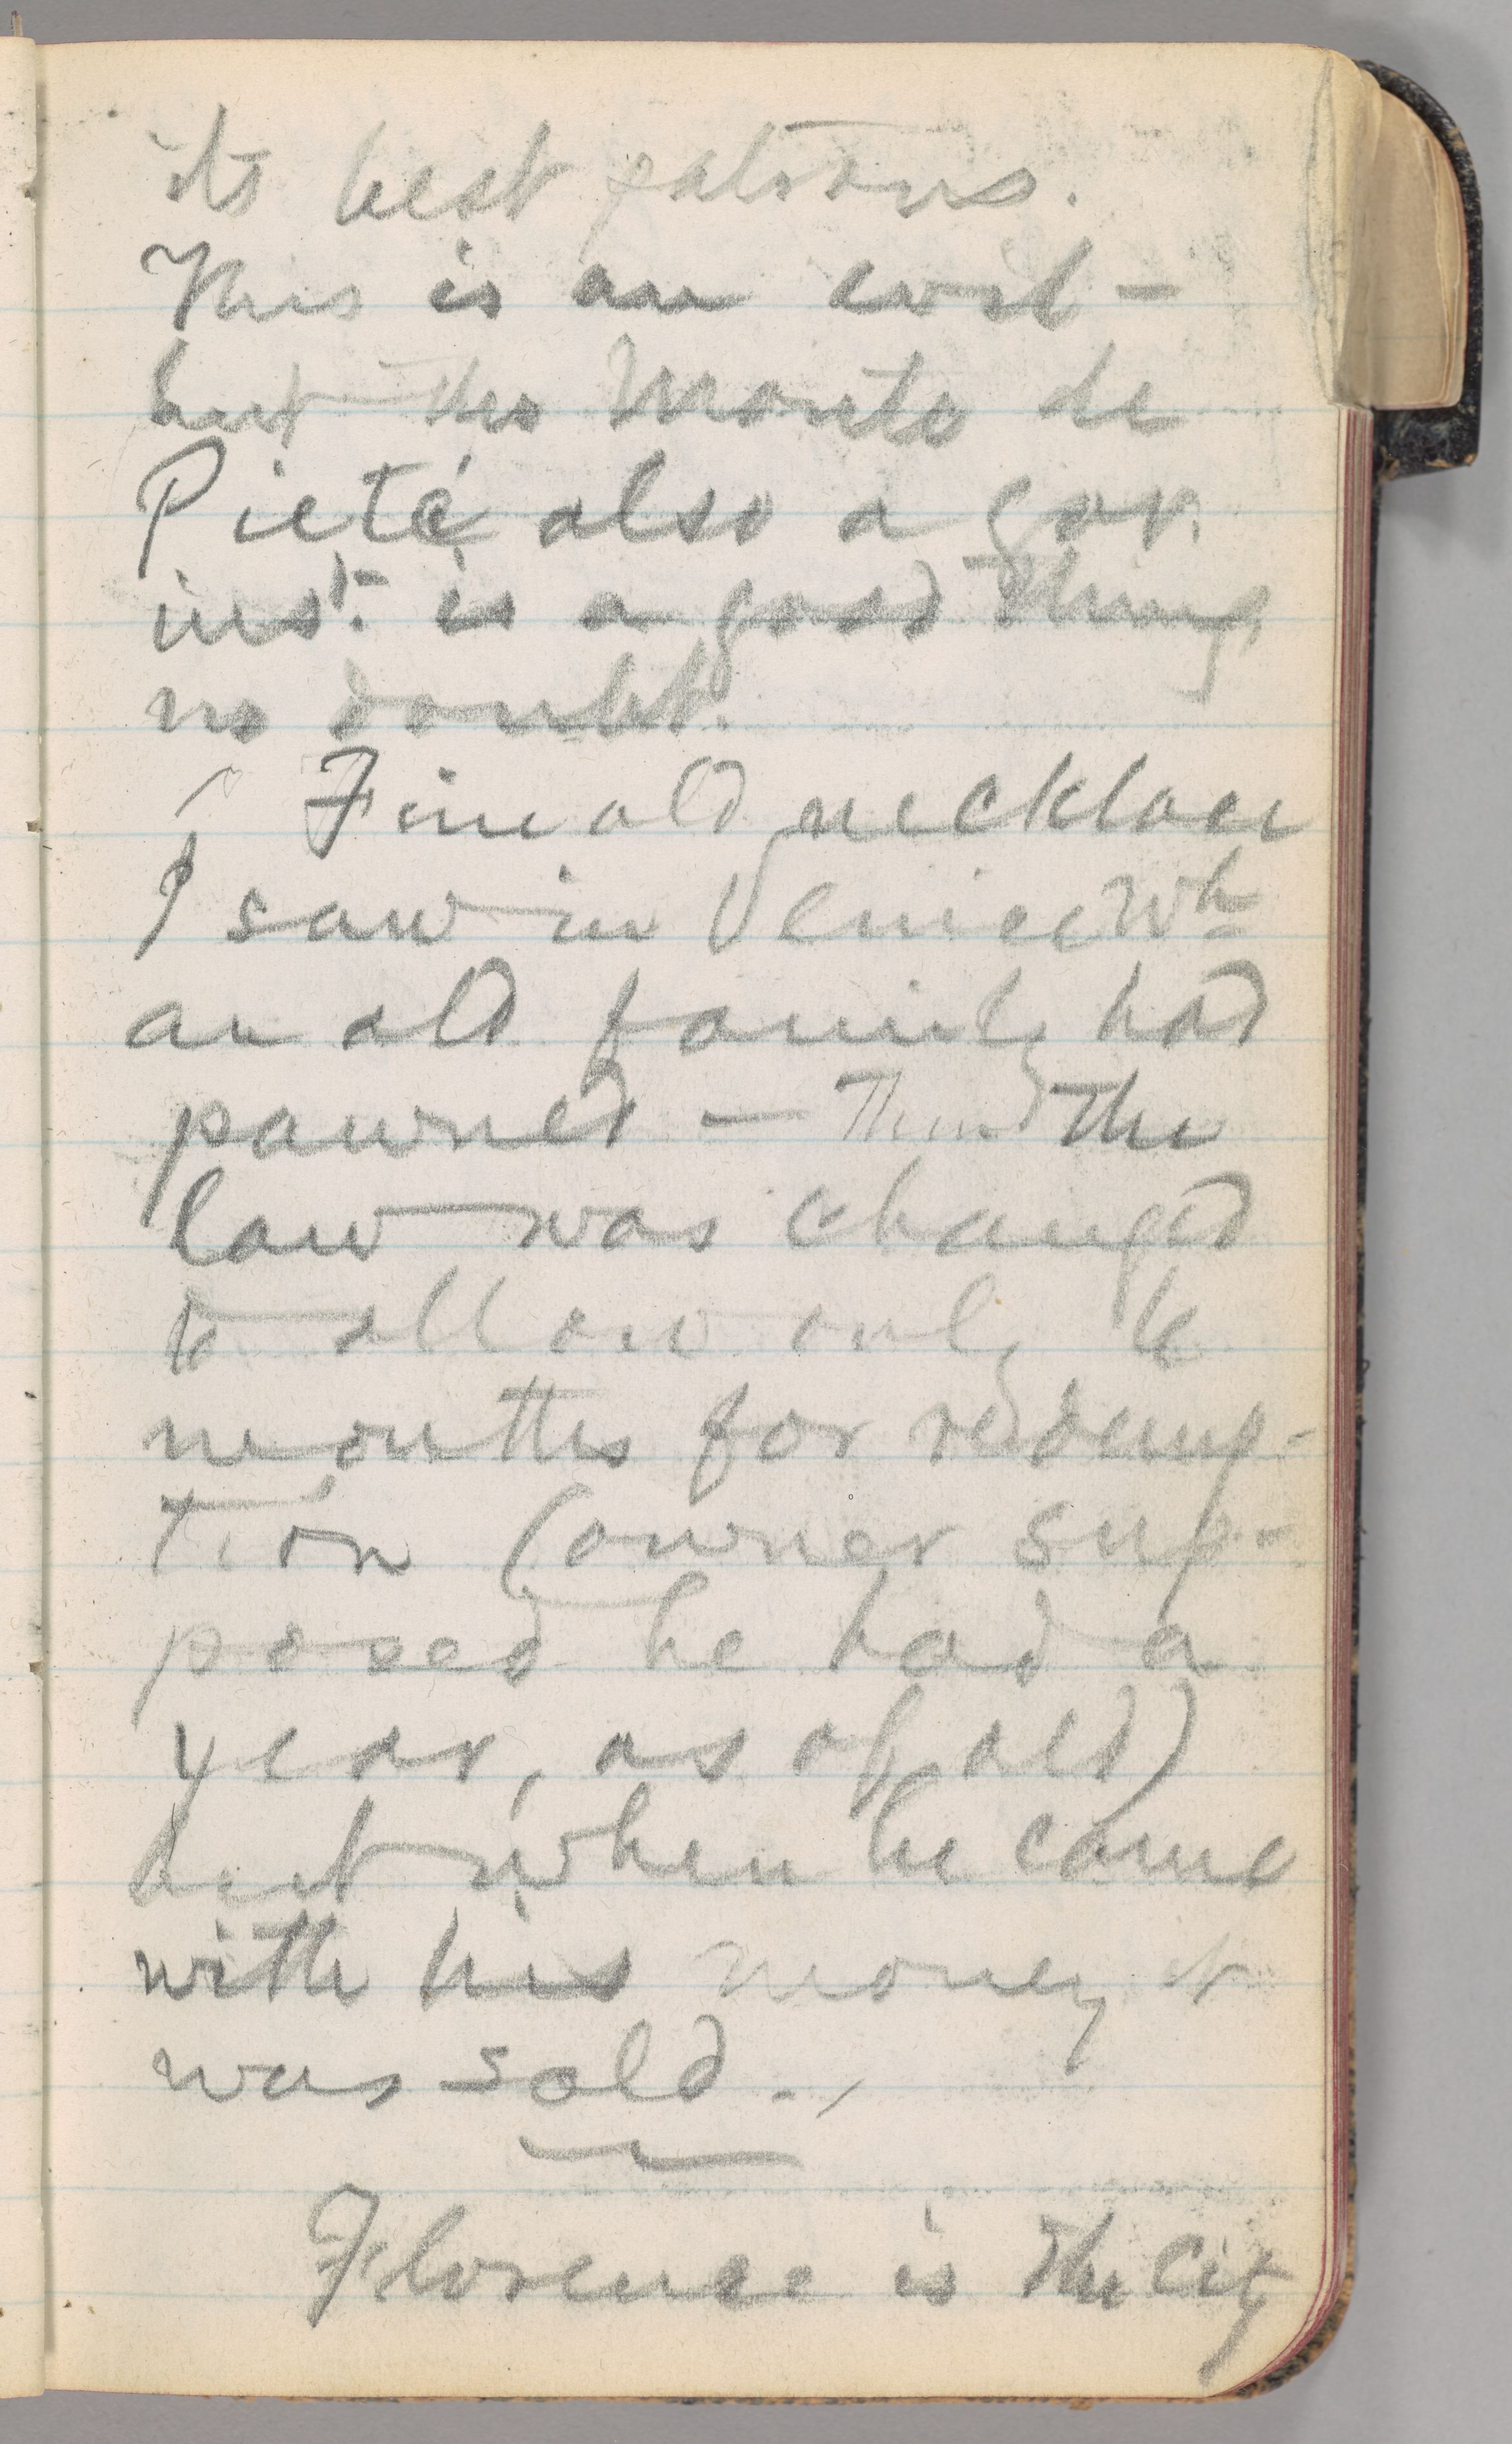 its best patrons.
This is an evil –
but the Monte de
Pieté also a gov.
inst. is a good thing,
no doubt.
Fine old necklace
I saw in Venice wh
an old family had
pawned — Then the
law was changed
to allow only 6
months for redemp-
tion (owner sup-
posed he had a
year, as of old)
but when he came
with his money it
was sold.
Florence is the city